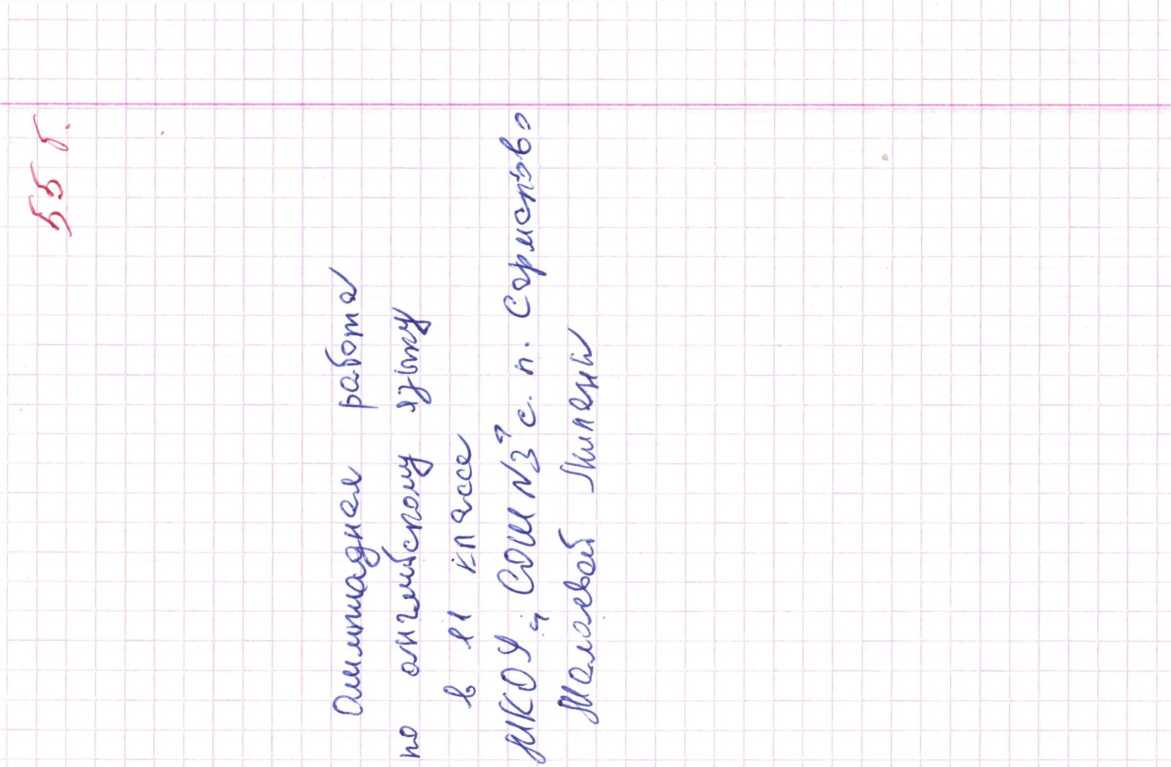 55 б.
Олимпиадная работа
по английскому языку
в 11 классе
МКОУ „СОШ №3" с. п. Сармаково
Малаевой Милены